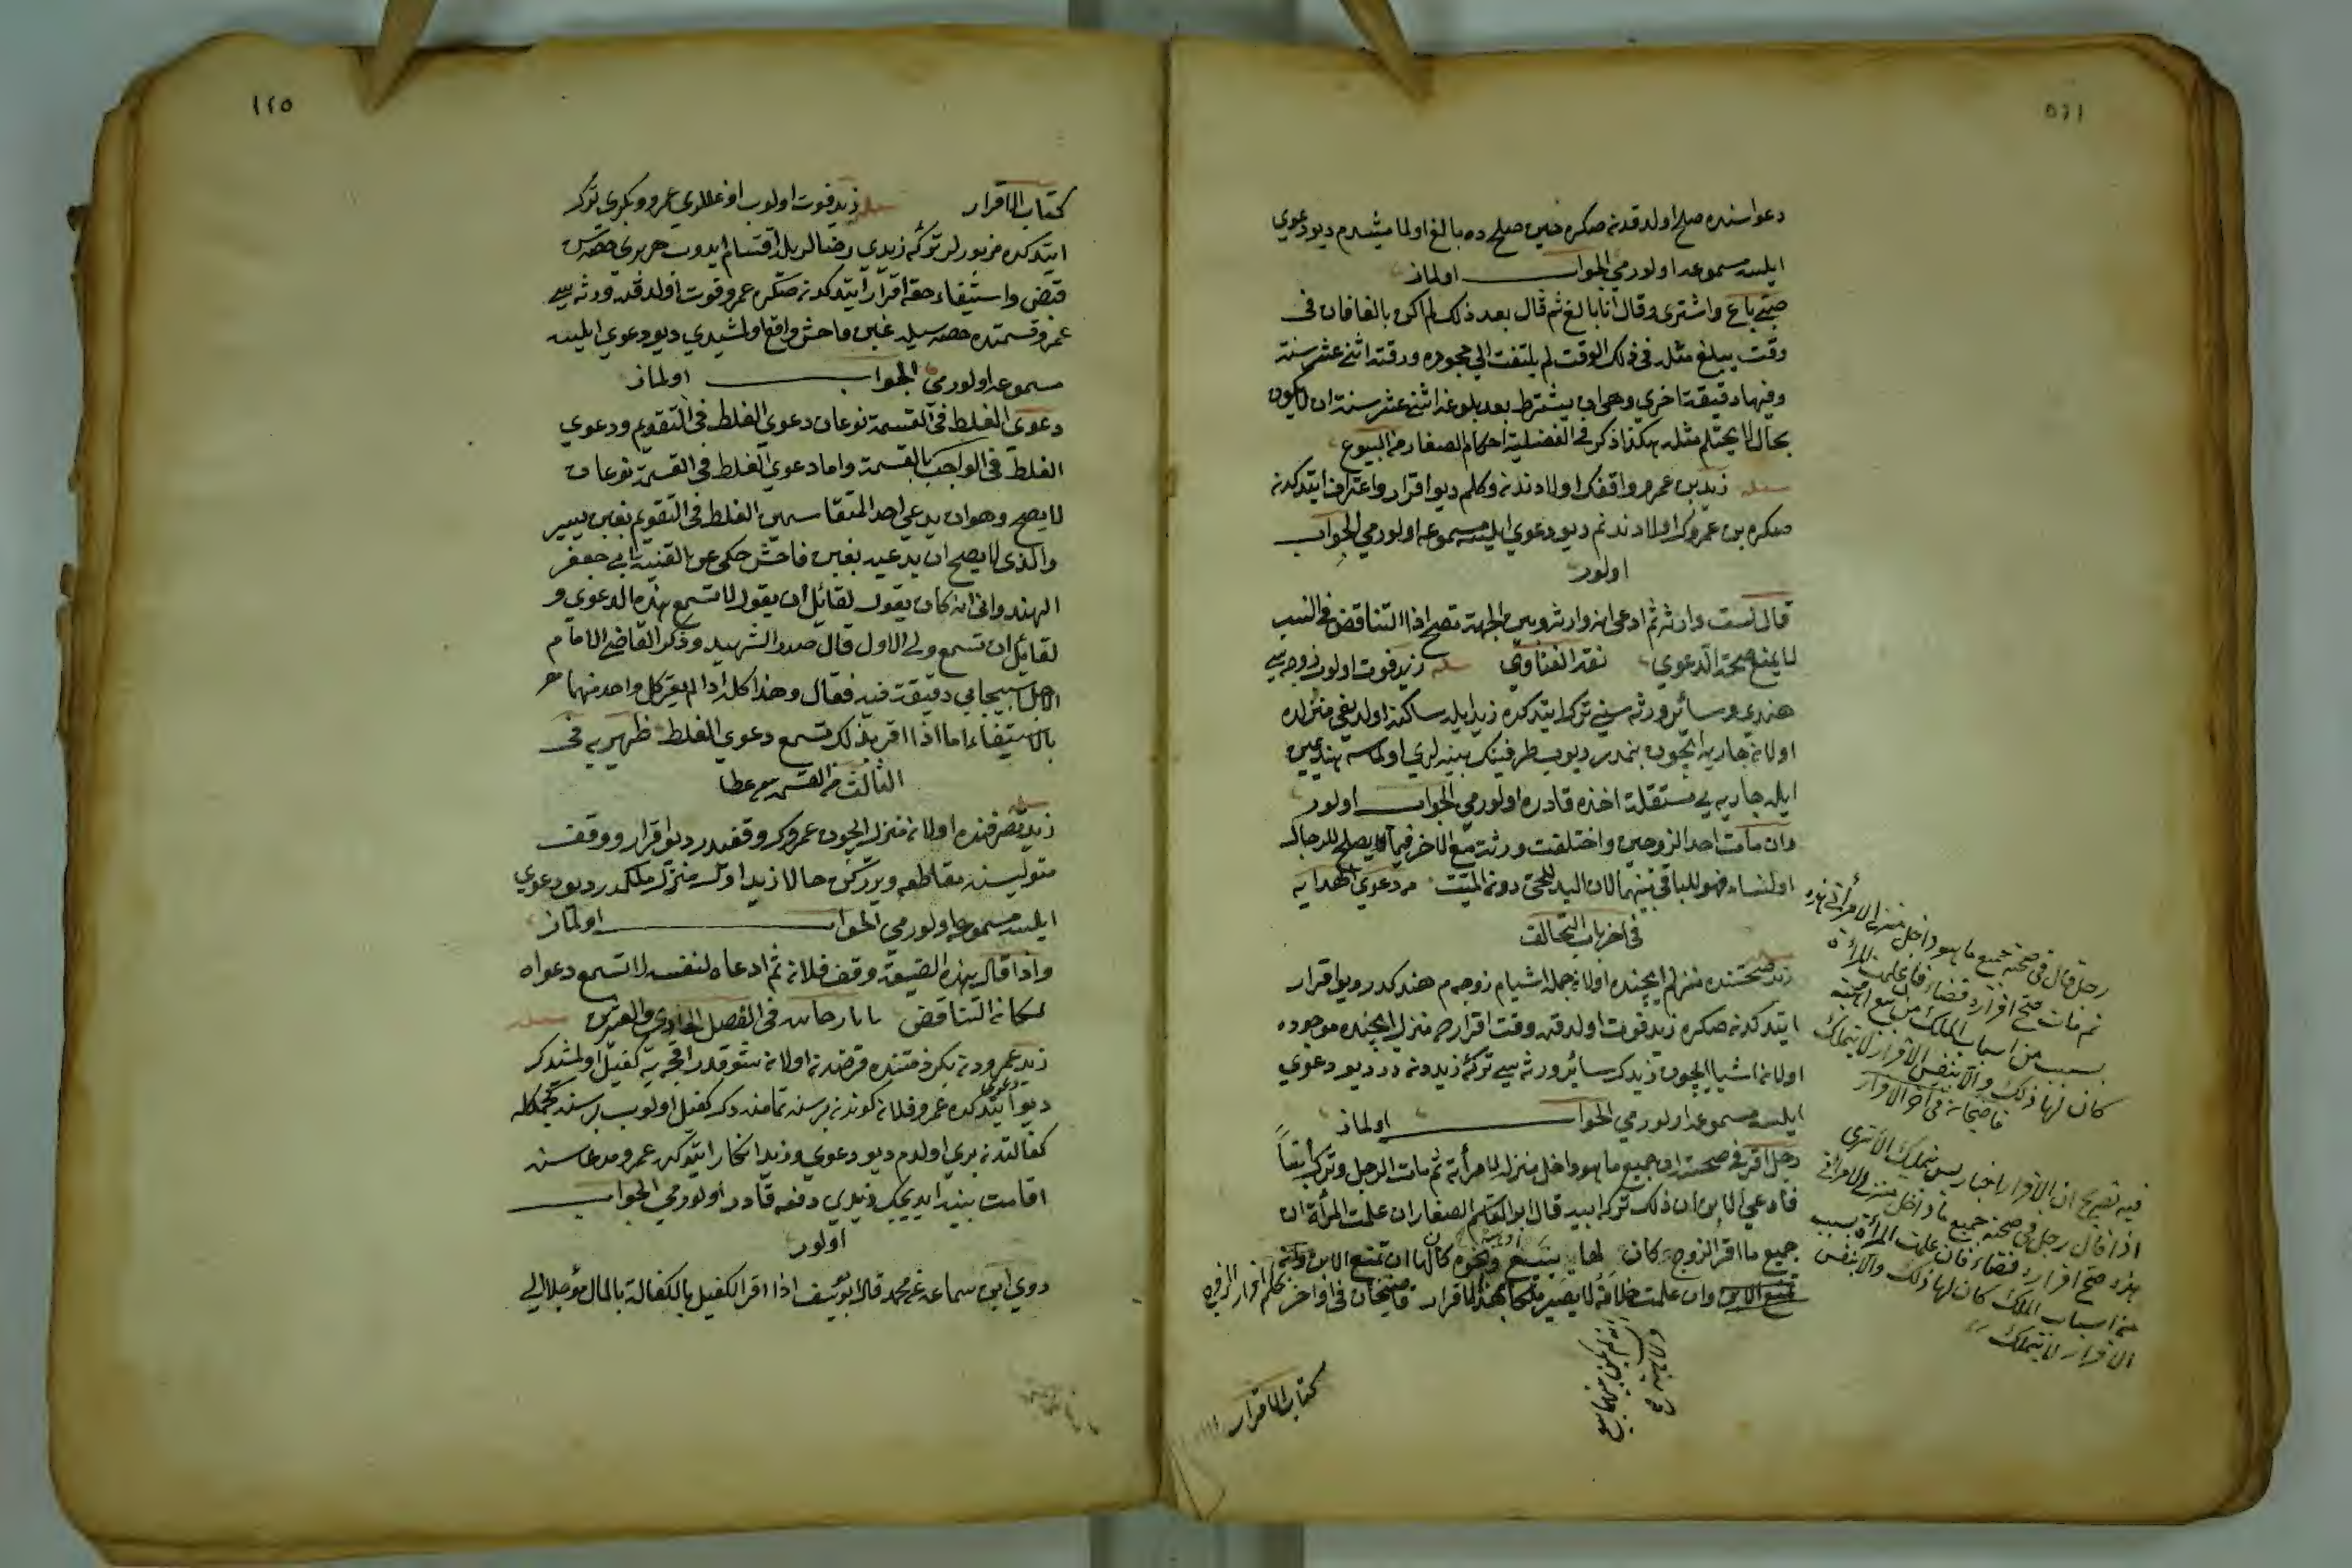 دعواسنده صلح اولدقدنصكره حين صلحده بالغ اولمامشيدم ديو دعوي
ايلسه مسموعه اولورمي الجواب اولماز
صبي باع واشترى وقال انا بالغ ثم قال بعد ذلك لم اكن بالغا فان في
وقت يبلغ مثله في ذلك الوقت لم يلتفت الي جحوده ووقته اثني عشر سنة
وفيها دقيقة اخري وهي ان يشترط بعد بلوغه اثني عشر سنة ان لا يكون
بحال لا يحتلم مثله هكذا ذكر في الفضلية احكام الصغار من البيوع
مسئله زيد بن عمرو واقفك اولادندن دكلم ديو اقرار واعتراف ايتدكدن
صكره بن عمروك اولادندنم ديو دعوي ايلسه مسموعه اولورمي الجواب
اولور
قال لست وارثه ثم ادعى انه وارثه وبين الجهة تصح اذ التناقض في النسب
لا يمنع صحة الدعوي نقد الفتاوي مسئله زيد فوت اولوب زوجه سي
هندي وسائر ورثه سني ترك ايتدكده زيد ايله ساكنه اولديغي منزلده
اولان جاريه ايچون بنمدر ديوب طرفينك بينه لري اولماسه هند يمين
ايله جاريه يي مستقلة اخذه قادره اولورمي الجواب اولور
وان مات احد الزوجين واختلفت ورثته مع الآخر فيما يصلح للرجال
او النساء فهو للباقي منهما لان اليد للحي دون الميت من دعوي الهدايه
في اخر باب التحالف
زيد صحتنده منزلم ايچنده اولان جمله اشيام زوجه م هندكدر ديو اقرار
ايتدكدن صكره زيد فوت اولدقده وقت اقرارده منزل ايچنده موجوده
اولان اشيا ايچون زيدك سائر ورثه سي تركۀ زيددندر ديو دعوي
ايلسه مسموعه اولورمي الجواب اولماز
رجل اقر في صحته ان جميع ما هو داخل منزله لامرأته ثم مات الرجل وترك ابناً
فادعي الابن ان ذلك تركة ابيه قال ابو القاسم الصفار ان علمت المرأة ان
جميع ما اقر الزوج كان لها ببيع او هبة ونحوه كان لها ان تمنع الابن
تمنع الابن وان علمت خلافه لا يصير ملكا بهذا الاقرار قاضيخان في اواخر
رجل قال في صحته جميع ما هو داخل منزلي لامرأتي هذه
ثم مات صح اقراره قضاء فان علمت المرأة
بسبب من اسباب الملك من بيع او هبة
كان لها ذلك والا بنفس الاقرار لا يتملك
قاضيخان في آخر الاقرار
فيه تصريح ان الاقرار اخبار ليس بتمليك الا ترى
اذا قال رجل في صحته جميع ما داخل منزلي لامرأتي
هذه صح اقراره قضاء فان علمت المرأة بسبب
من اسباب الملك كان لها ذلك والا بنفس
الاقرار لا يتملك
كتاب الاقرار
١٢٥
كتاب الاقرار مسئله زيد فوت اولوب اوغللري عمرو وبكري ترك
ايتدكده مزبورلر تركۀ زيدي رضالريله اقتسام ايدوب هر بري حصه سن
قبض واستيفاء حقه اقرار ايتدكدنصكره عمرو فوت اولدقده ورثه سي
عمرو قسمتده حصه سيله غبن فاحش واقع اولمشيدي ديو دعوي ايلسه
مسموعه اولورمي الجواب اولماز
دعوي الغلط في القسمة نوعان دعوي الغلط في التقويم ودعوي
الغلط في الواجب بالقسمة واما دعوي الغلط في القسمة نوعان
لا يصح وهو ان يدعي احد المتقاسمين الغلط في التقويم بغبن يسير
والذى لا يصح ان يدعيه بغبن فاحش حكى عن الفقيه ابي جعفر
الهندواني انه كان يقول لقائل ان يقول لا تسمع هذه الدعوي و
لقائل ان تسمع ولي الاول قال صدر الشهيد وذكر القاضي الامام
الاسبيجابي دقيقة فيه فقال وهذا كله اذا لم يقر كل واحد منهما
بالاستيفاء اما اذا اقر بذلك تسمع دعوي الغلط ظهيريه في
الثالث من القسمه
زيد تصرفنده اولان منزل ايچون عمروك وقفيدر ديو اقرار ووقف
متوليسنه مقاطعه ويرركن حالا زيد اول منزل ملكمدر ديو دعوي
ايلسه مسموعه اولورمي الجواب اولماز
واذا قال هذه الضيعة وقف فلان ثم ادعاه لنفسه لا تسمع دعواه
لمكان التناقض تاتارخان في الفصل الحادي والعشرين مسئله
زيد عمرودن بكر ذمتنده قرضدن اولان شو قدر اقچه يه كفيل اولمشدك
ديو دعوى ايتدكده عمرو فلان كوندن برسنه تمامنه دك كفيل اولوب برسنه كچمكله
كفالتدن بري اولدم ديو دعوي وزيد انكار ايتدكده عمرو مدعاسنه
اقامت بينه ايديجك زيدي دفعه قادر اولورمي الجواب
اولور
روي ابن سماعه عن محمد قال ابو يوسف اذا اقر الكفيل بالكفالة بالمال مؤجلا الي